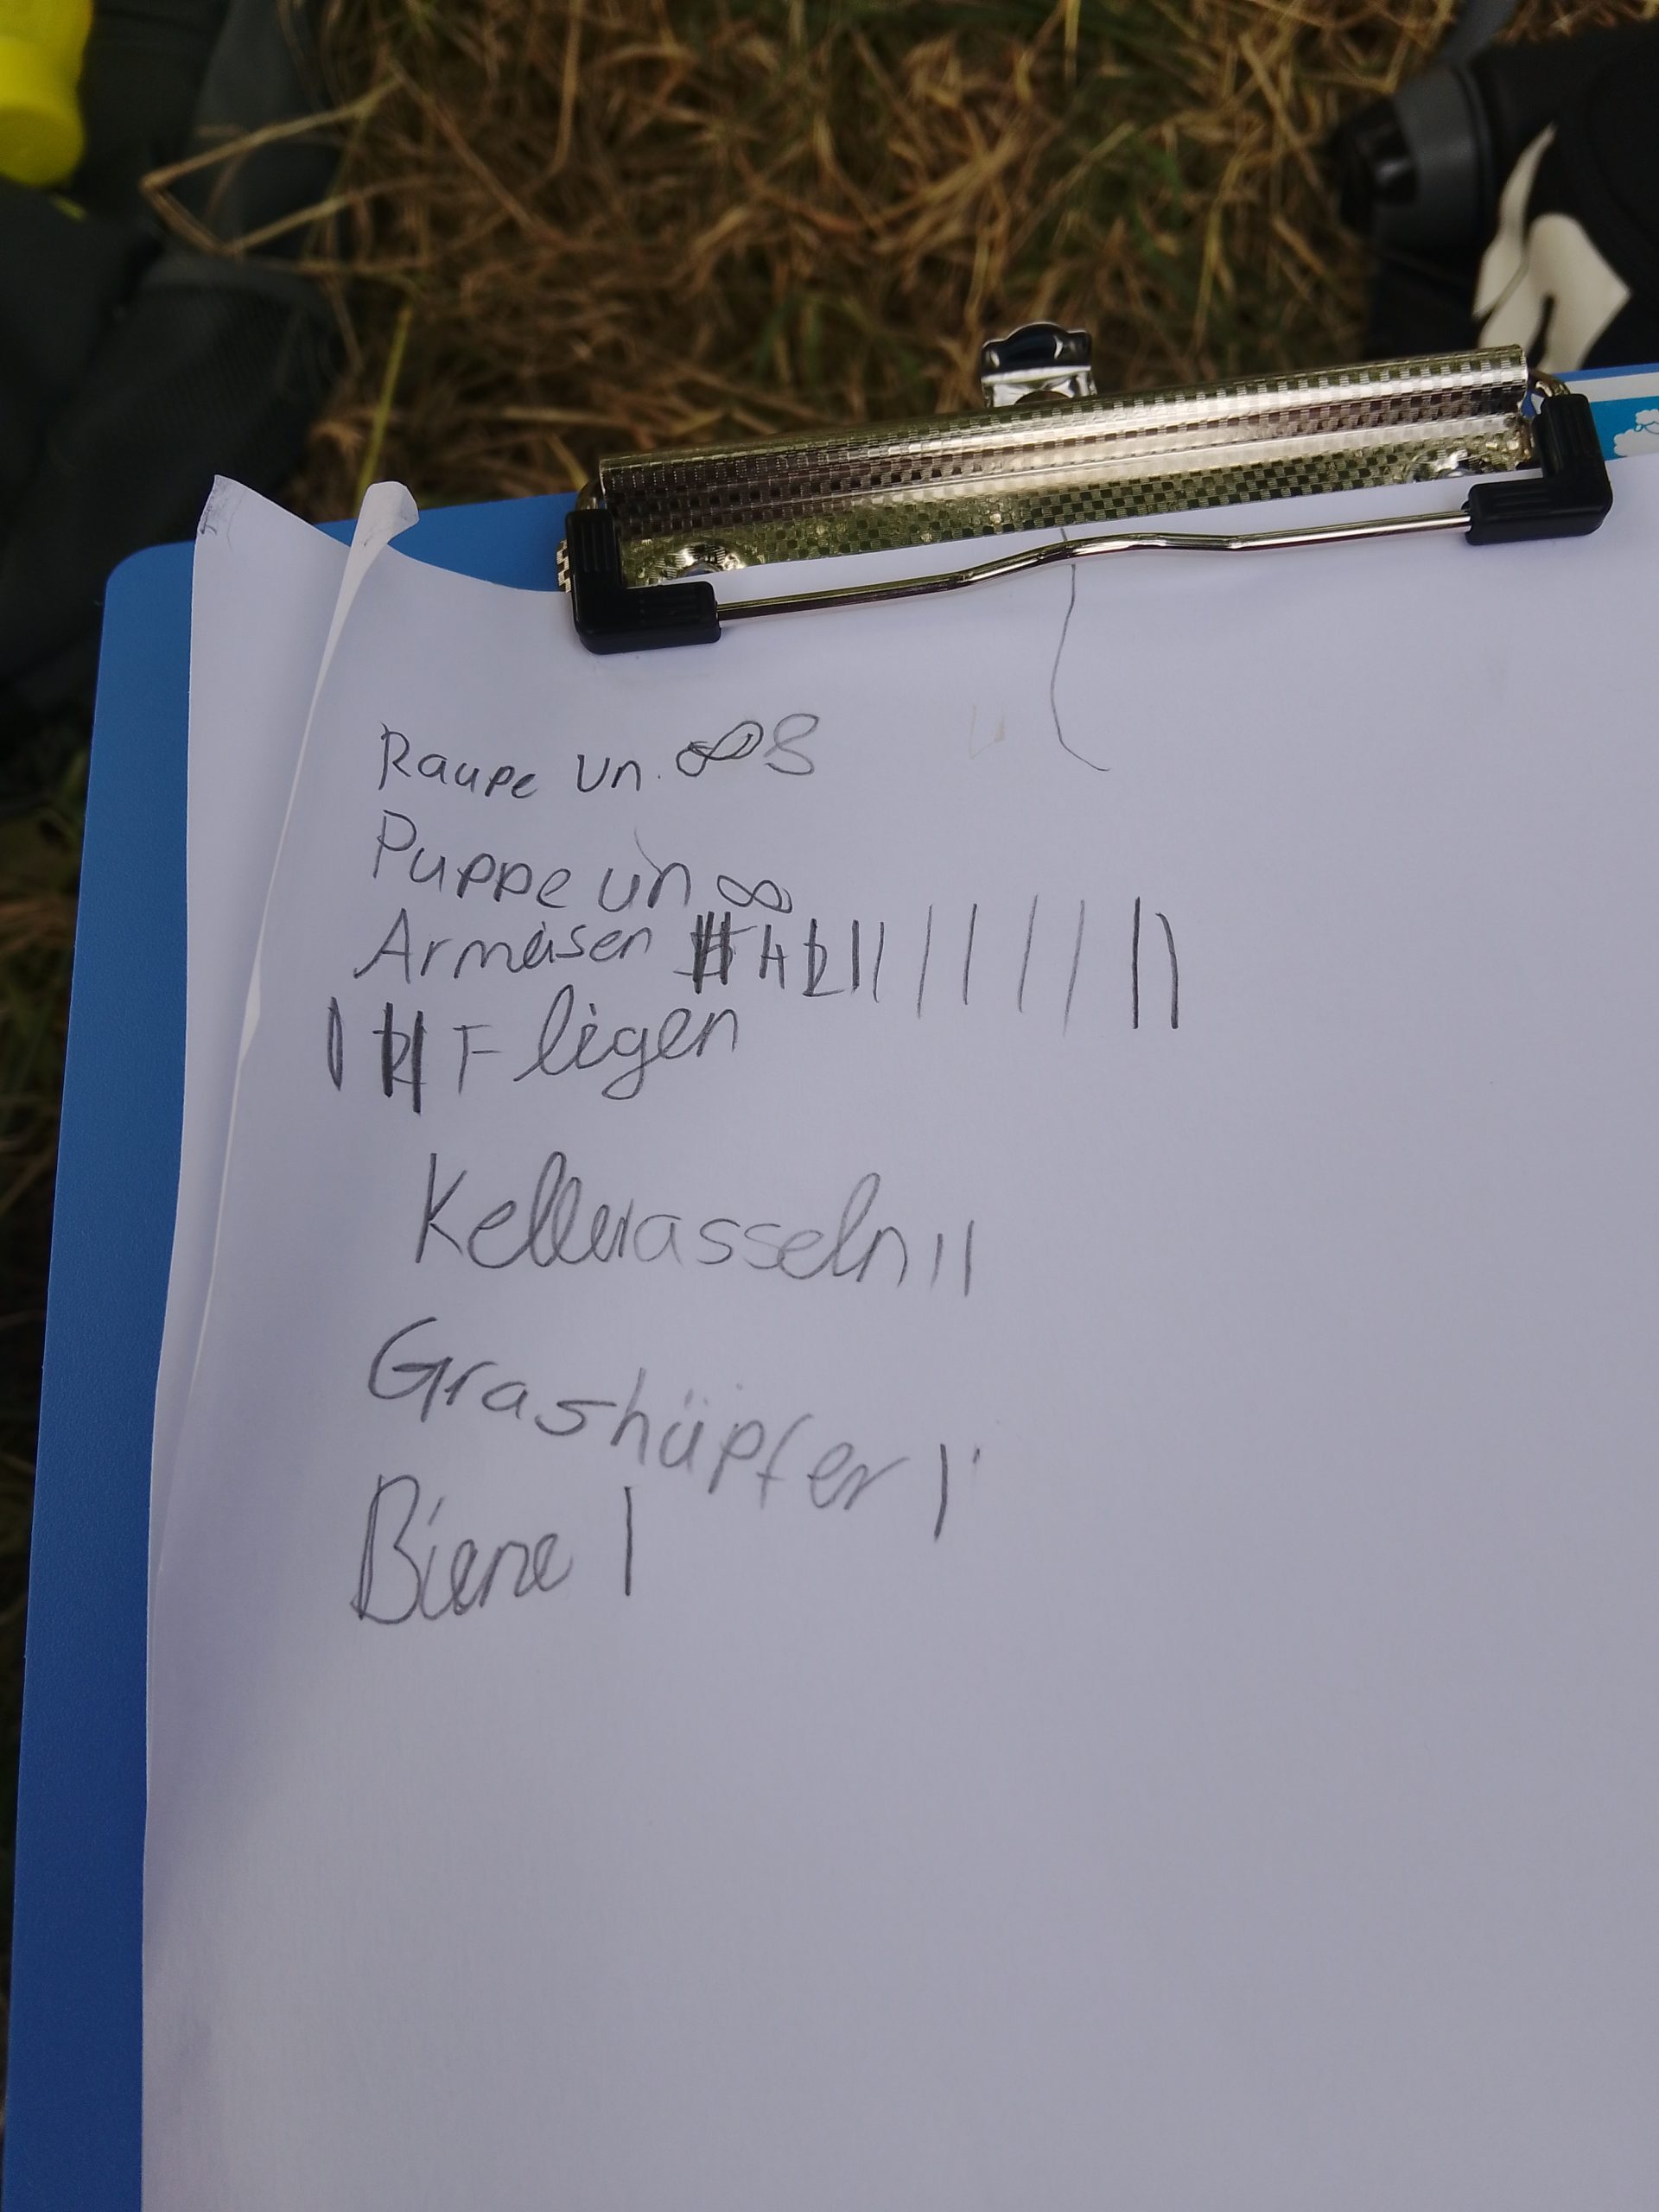 Raupe un. ∞ 8
Puppe un ∞
Armeisen
Fligen
Kellerasseln ||
Grashüpfer |
Biene |